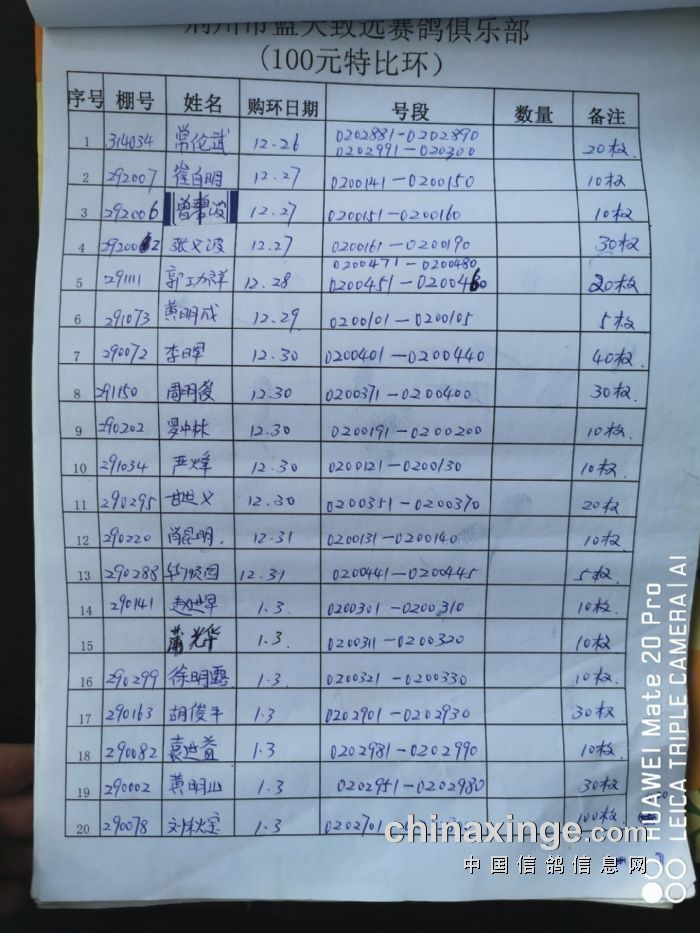 荆州市蓝天致远赛鸽俱乐部
(100元特比环)
序号 棚号 姓名 购环日期 号段 数量 备注
1 314034 常伦武 12.26 0202881-0202890 20枚
0202991-020300
2 292007 崔白明 12.27 0200141-0200150 10枚
3 292006 12.27 0200151-0200160 10枚
4 张义波 12.27 0200161-0200190 30枚
0200471-0200480
5 291111 郭功祥 12.28 0200451-0200460 20枚
6 291073 黄明成 12.29 0200101-0200105 5枚
7 290072 李日军 12.30 0200401-0200440 40枚
8 291150 周明俊 12.30 0200371-0200400 30枚
9 290202 罗中林 12.30 0200191-0200200 10枚
10 291034 严烽 12.30 0200121-0200130 10枚
11 290295 甘进义 12.30 0200351-0200370 20枚
12 290220 肖昆明. 12.31 0200131-0200140 10枚
13 290288 华顺国 12.31 0200441-0200445 5枚
14 290141 赵进军 1.3. 0200301-0200310 10枚
15 光华 1.3. 0200311-0200320 10枚
16 290299 徐明露 1.3. 0200321-0200330 10枚
17 290163 胡俊丰 1.3 0202901-0202930 30枚
18 290082 袁进益 1.3 0202981-0202990 10枚
19 290002 黄明山 1.3 0202951-0202980 30枚
20 290078 刘秋宝 1.3 0202701- 100枚
chinaxinge.com
中国信鸽信息网
HUAWEI Mate 20 Pro
LEICA TRIPLE CAMERA | AI